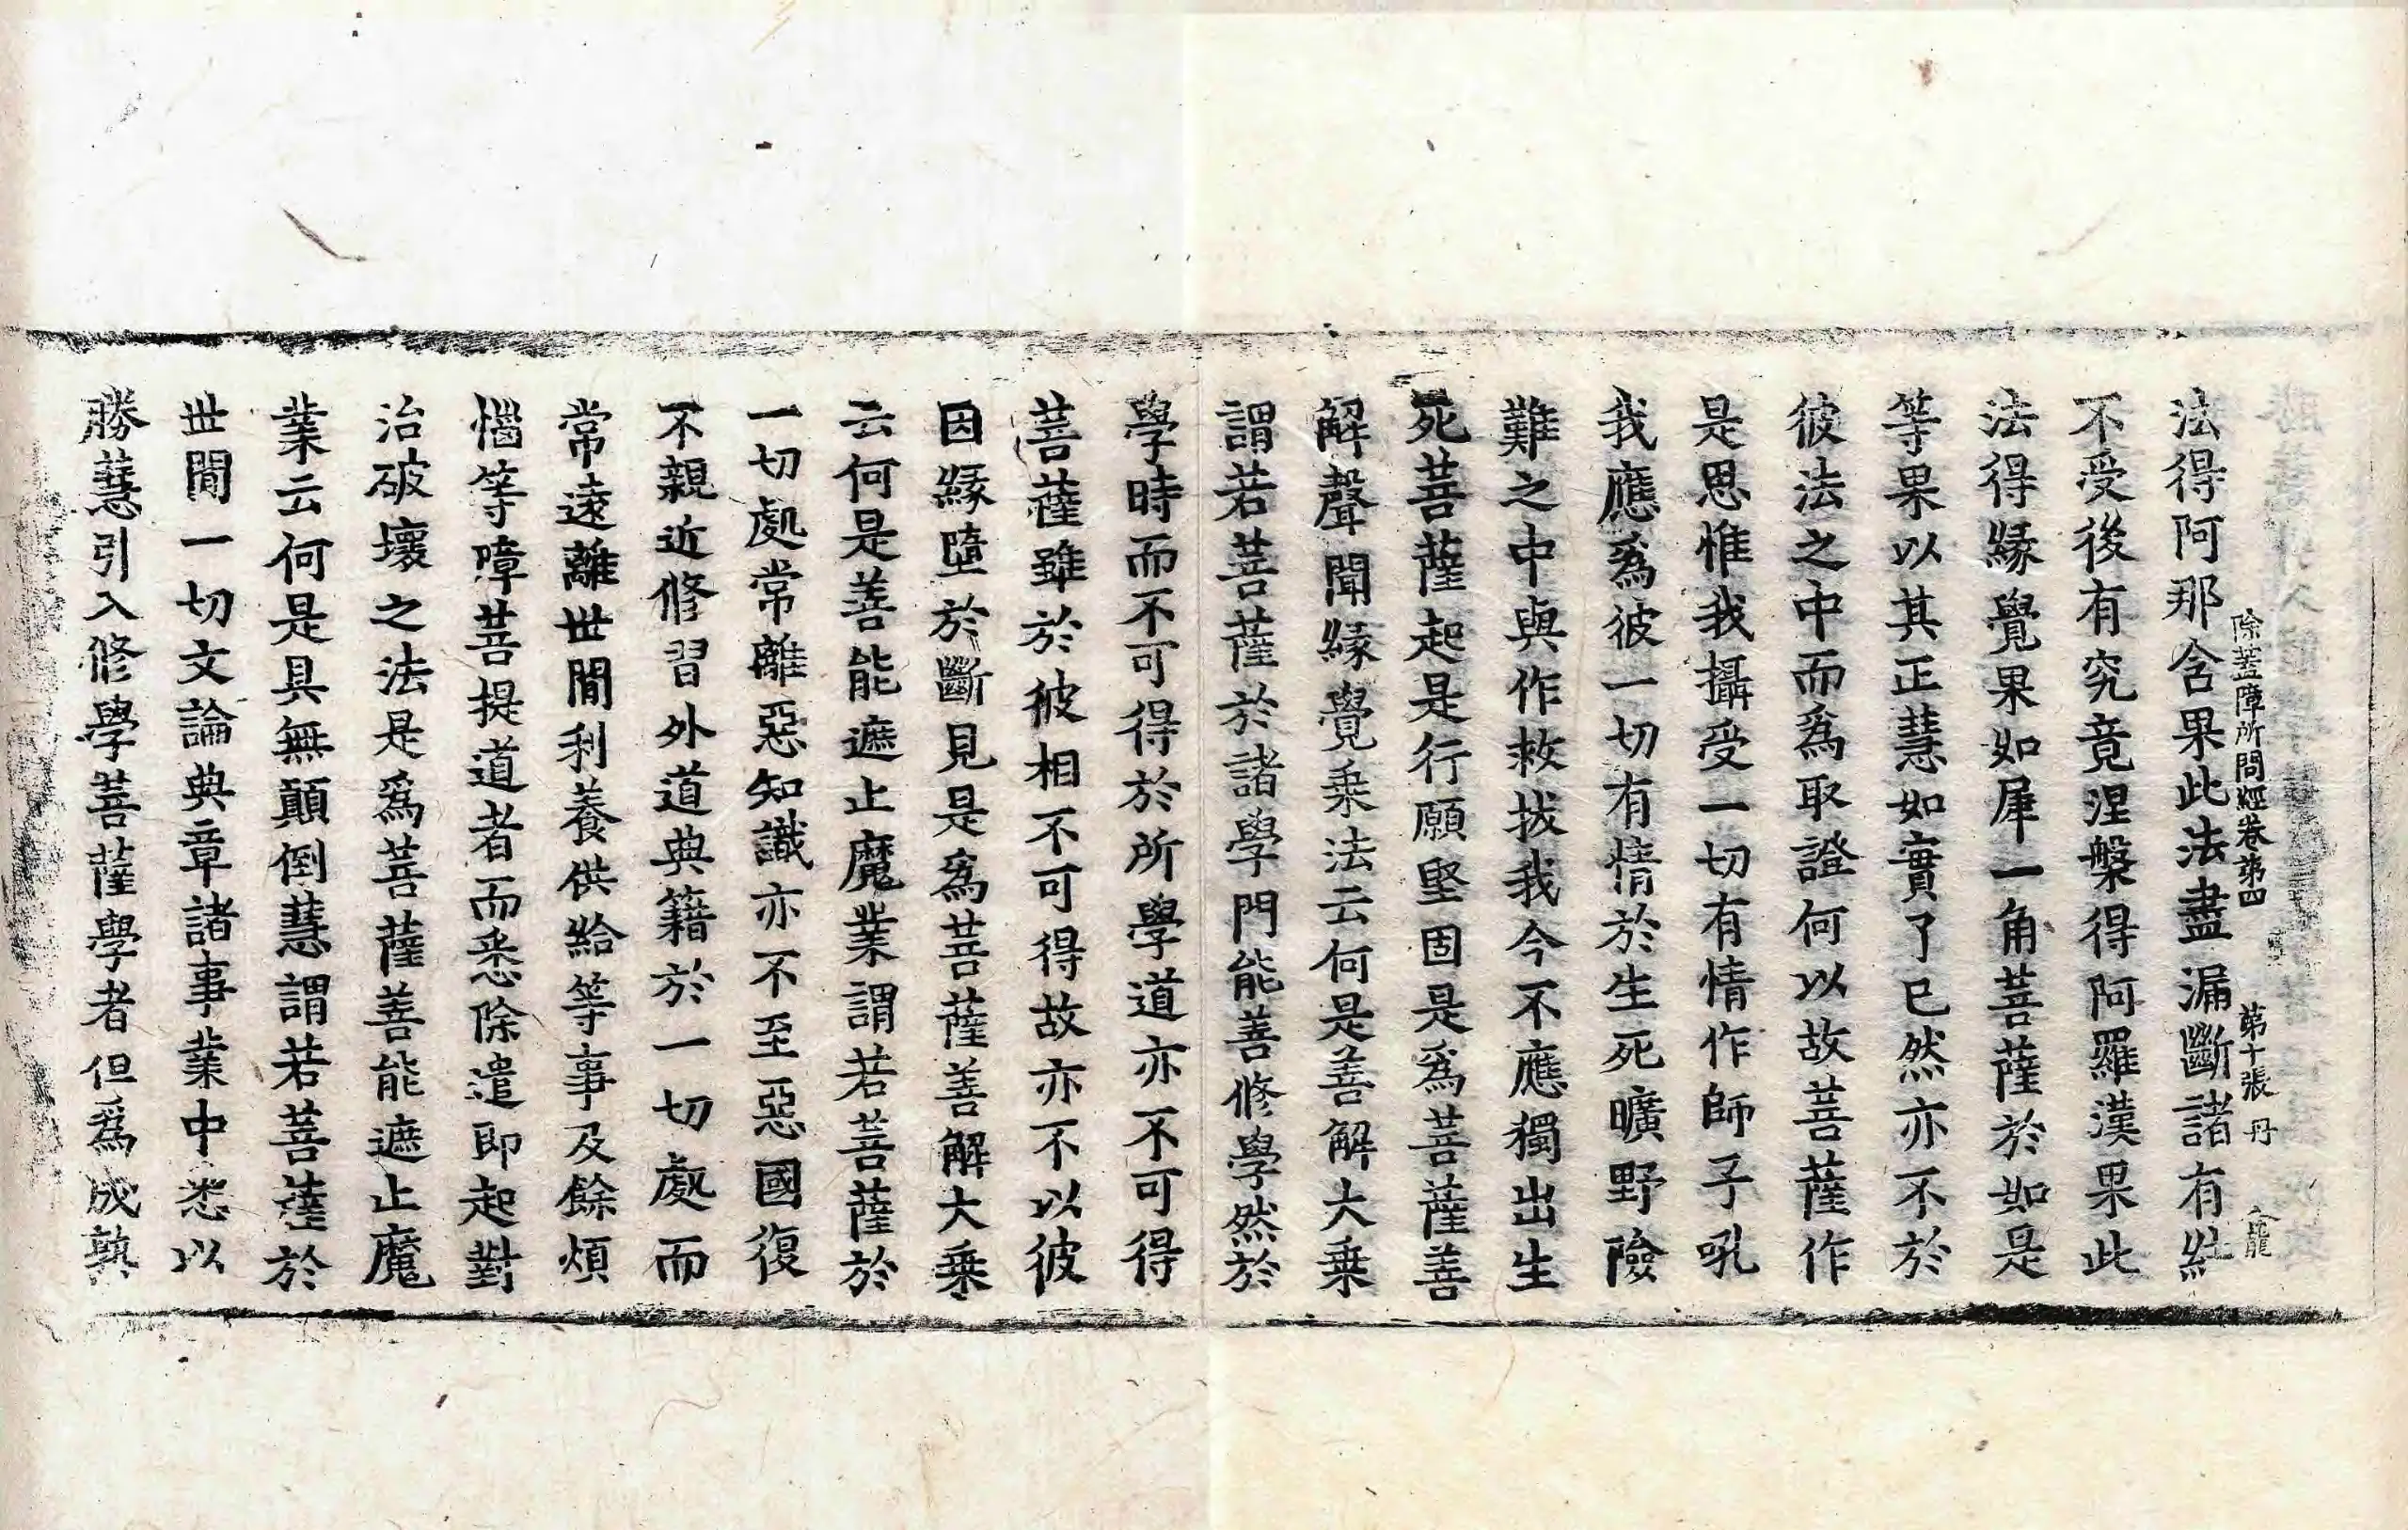 除蓋障所問經卷第四 第十張 丹 龍
法得阿那含果此法盡漏斷諸有結
不受後有究竟涅槃得阿羅漢果此
法得緣覺果如犀一角菩薩於如是
等果以其正慧如實了已然亦不於
彼法之中而爲取證何以故菩薩作
是思惟我攝受一切有情作師子吼
我應爲彼一切有情於生死曠野險
難之中與作救拔我今不應獨出生
死菩薩起是行願堅固是爲菩薩善
解聲聞緣覺乘法云何是善解大乘
謂若菩薩於諸學門能善修學然於
學時而不可得於所學道亦不可得
菩薩雖於彼相不可得故亦不以彼
因緣墮於斷見是爲菩薩善解大乘
云何是善能遮止魔業謂若菩薩於
一切處常離惡知識亦不至惡國復
不親近修習外道典籍於一切處而
常遠離世閒利養供給等事及餘煩
惱等障菩提道者而悉除遣即起對
治破壞之法是爲菩薩善能遮止魔
業云何是具無顛倒慧謂若菩薩於
世閒一切文論典章諸事業中悉以
勝慧引入修學菩薩學者但爲成熟